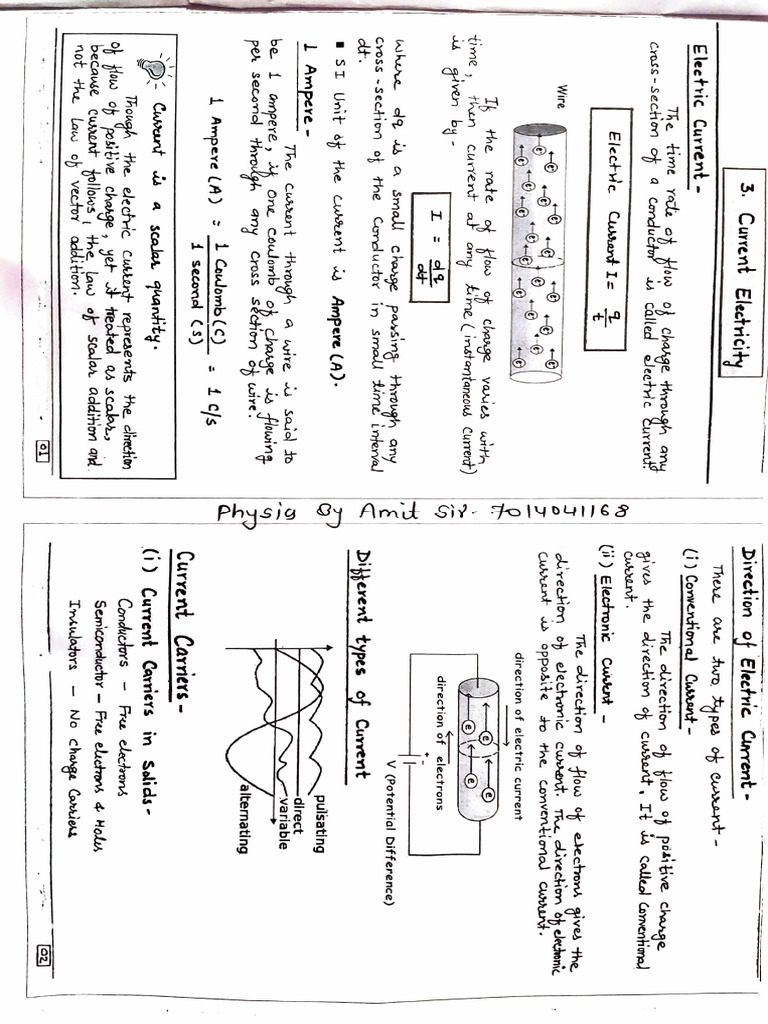 3. Current Electricity
Electric Current-
The time rate of flow of charge through any
cross-section of a conductor is called electric current.
Electric Current I = q/t
Wire
e e e e e e e e e e e e e e e e e
If the rate of flow of charge varies with
time, then current at any time (instantaneous current)
is given by -
I = dq/dt
where dq is a small charge passing through any
cross-section of the conductor in small time interval
dt.
▪ SI Unit of the current is Ampere (A).
1 Ampere-
The current through a wire is said to
be 1 ampere, if one coulomb of charge is flowing
per second through any cross section of wire.
1 Ampere (A) = 1 Coulomb (C) / 1 second (s) = 1 C/s
- Current is a scalar quantity.
Though the electric current represents the direction
of flow of positive charge, yet it treated as scalar,
because current follows, the law of scalar addition and
not the law of vector addition.
01
Physis By Amit Sir- 7014041168
Direction of Electric Current-
There are two types of current-
(i) Conventional Current-
The direction of flow of positive charge
gives the direction of current. It is called conventional
current.
(ii) Electronic Current -
The direction of flow of electrons gives the
direction of electronic current. The direction of electronic
current is opposite to the conventional current.
direction of electric current
e e e e
direction of electrons
+ -
V (Potential Difference)
Different types of Current
pulsating
direct
variable
alternating
Current Carriers-
(i) Current Carriers in Solids-
Conductors - Free electrons
Semiconductor - Free electrons & Holes
Insulators - No Charge Carriers
02